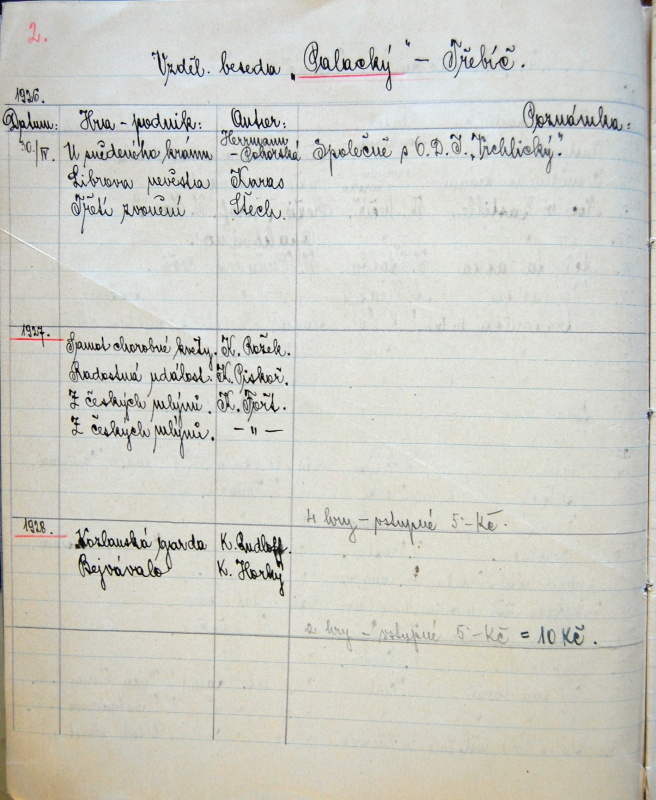 2.
Vzděl. beseda „Palacký" – Třebíč.
1926.
Datum: Hra – podnik: Autor: Poznámka:
30./IV. U snědeného krámu Herrmann – Pohorská Společně s O.D.J. „Vrchlický."
Librova nevěsta Karas
Třetí zvonění Štech.
1927.
Samot chorobné květy. K. Rožek.
Radostná událost. K. Piskoř.
Z českých mlýnů. K. Fořt.
Z českých mlýnů. – „ –
4 hry – vstupné 5 – Kč.
1928.
Kozlanská garda K. Rudloff.
Bejvávalo K. Horký
2 hry – vstupné 5 – Kč = 10 Kč.